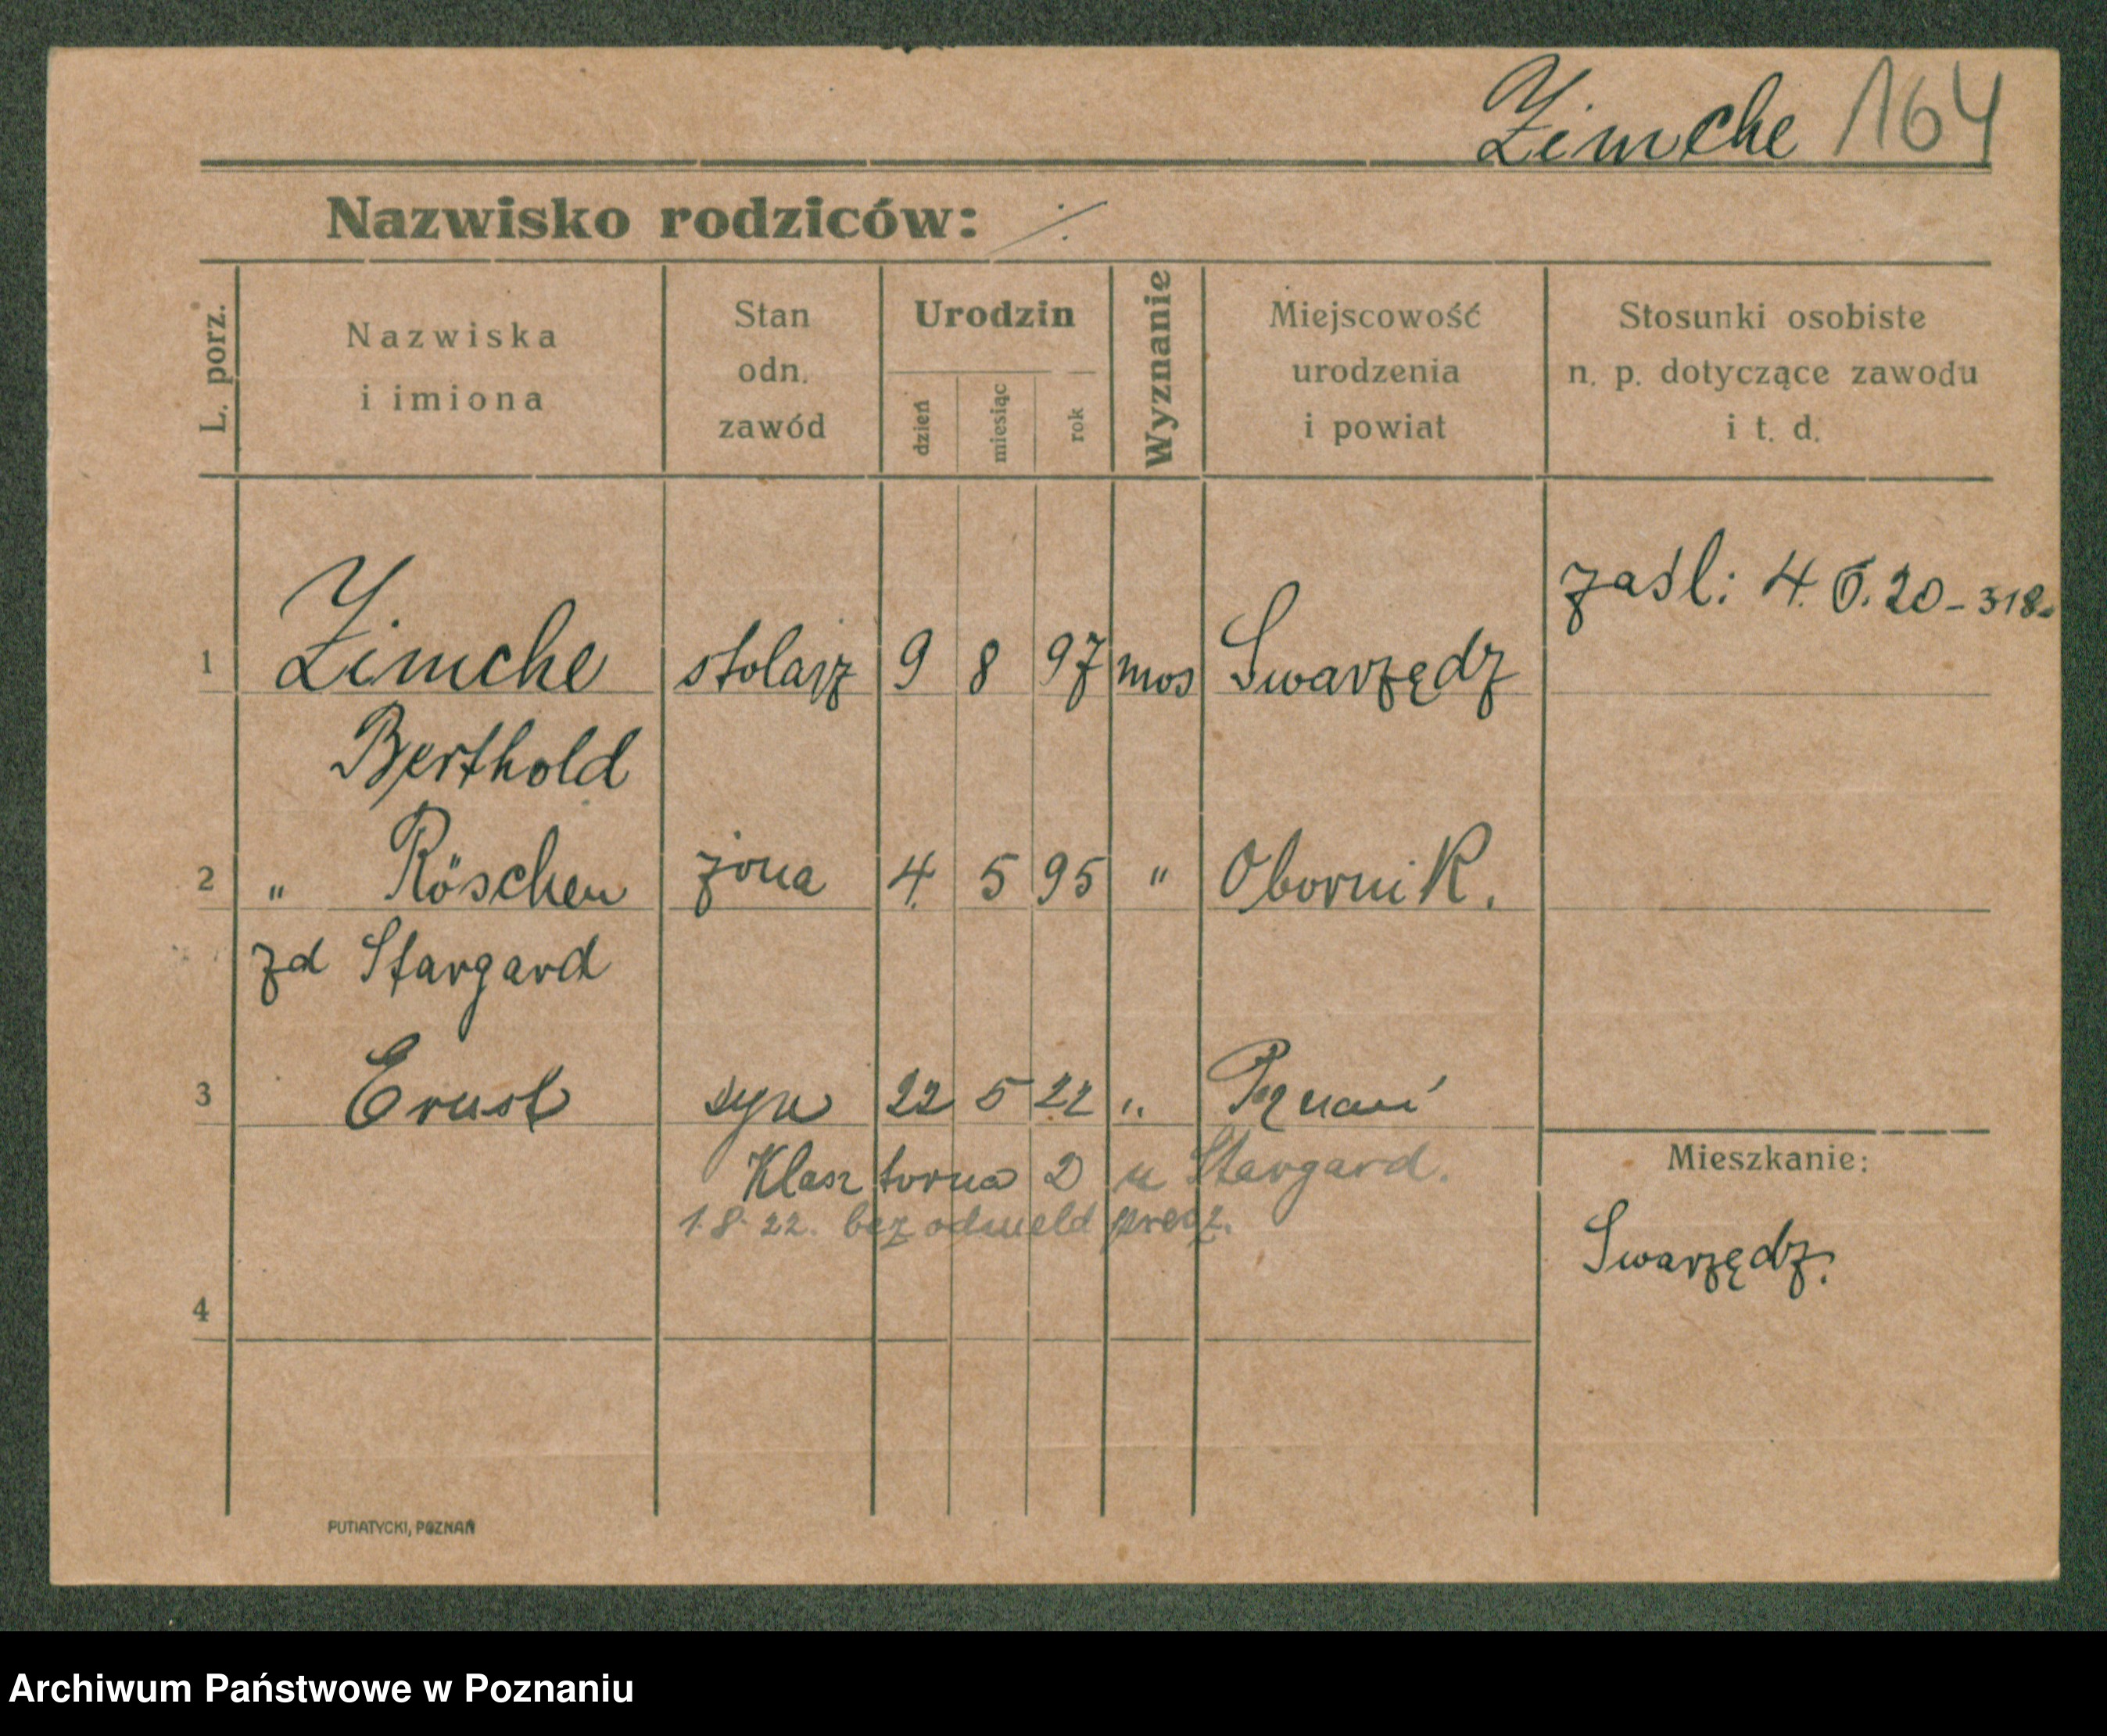 Zimche 164
Nazwisko rodziców: ⁒
L. porz.
Nazwiska
i imiona
Stan
odn.
zawód
Urodzin
dzień
miesiąc
rok
Wyznanie
Miejscowość
urodzenia
i powiat
Stosunki osobiste
n. p. dotyczące zawodu
i t. d.
zaśl: 4. 5. 20 - 318.
1 Zimche stolarz 9 8 97 mos Swarzędz
Berthold
2 " Röschen żona 4. 5 95 " Obornik.
zd Stargard
3 Ernst syn 22 5 22 " Poznań
Klasztorna 2 u Stargard.
1.8.22. bez odmeld precz.
Mieszkanie:
Swarzędz.
4
PUTIATYCKI, POZNAŃ
Archiwum Państwowe w Poznaniu